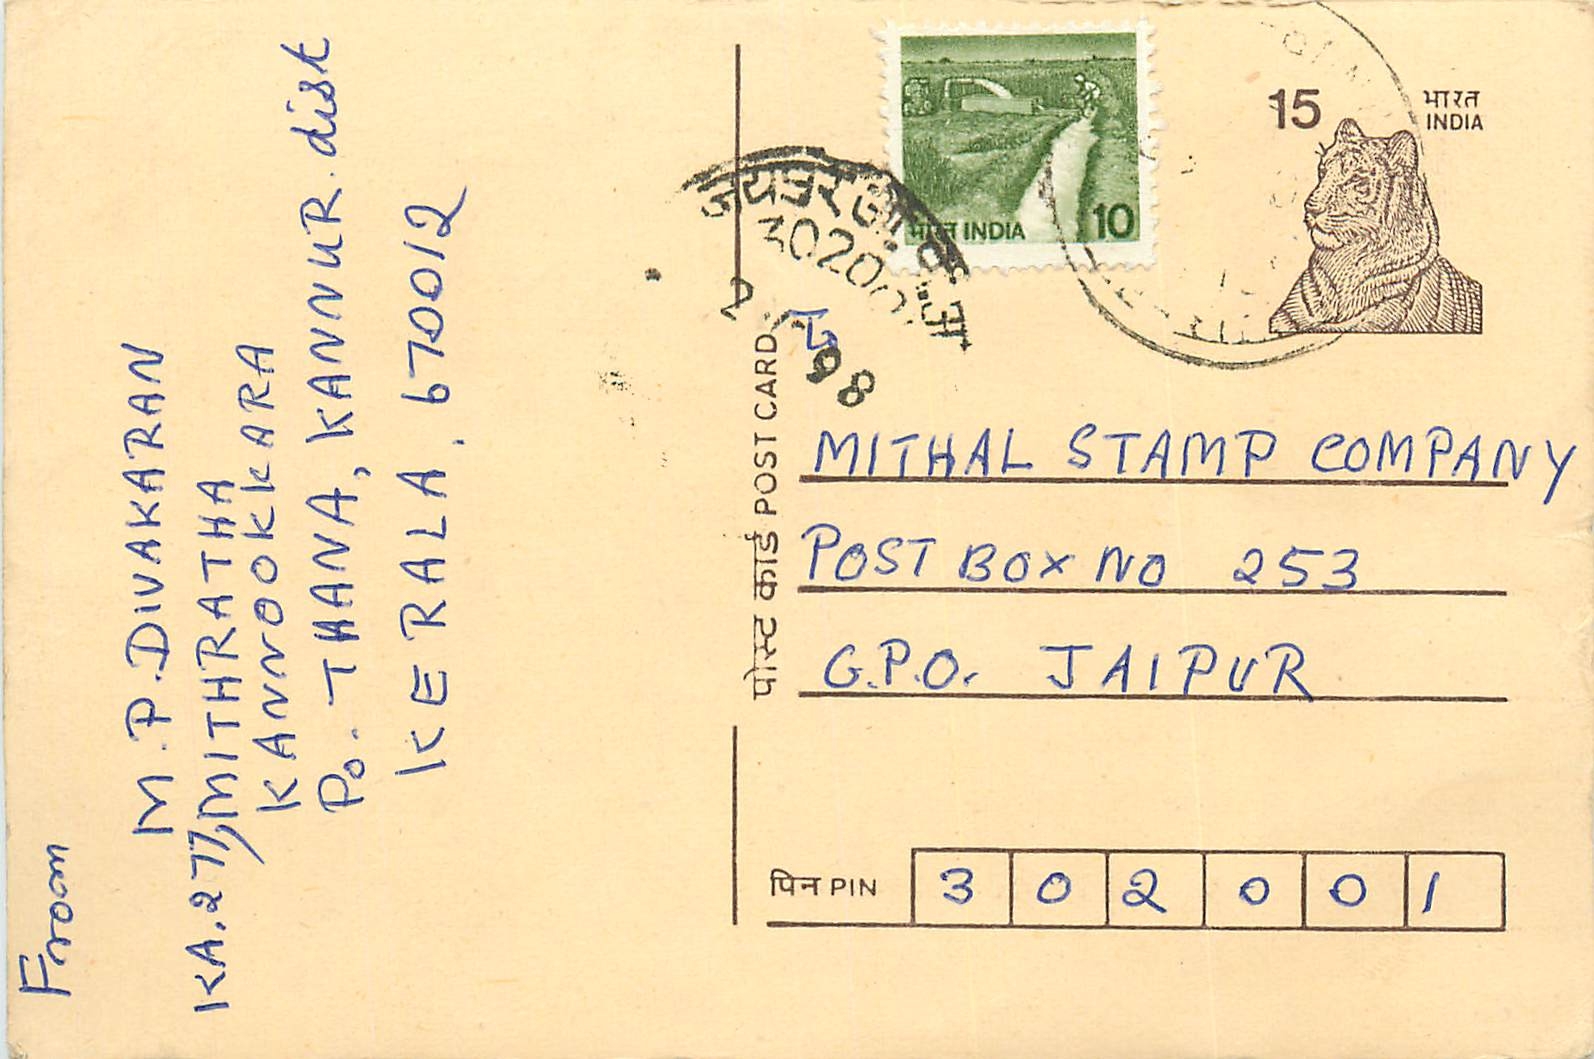 From
M.P. DIVAKARAN
KA.277, MITHRATHA
KANNOOKKARA
Po. THANA, KANNUR. dist
KERALA. 670012
भारत INDIA 10
15 भारत
INDIA
98
पोस्ट कार्ड POST CARD
MITHAL STAMP COMPANY
POST BOX NO 253
G.P.O. JAIPUR
पिन PIN 3 0 2 0 0 1